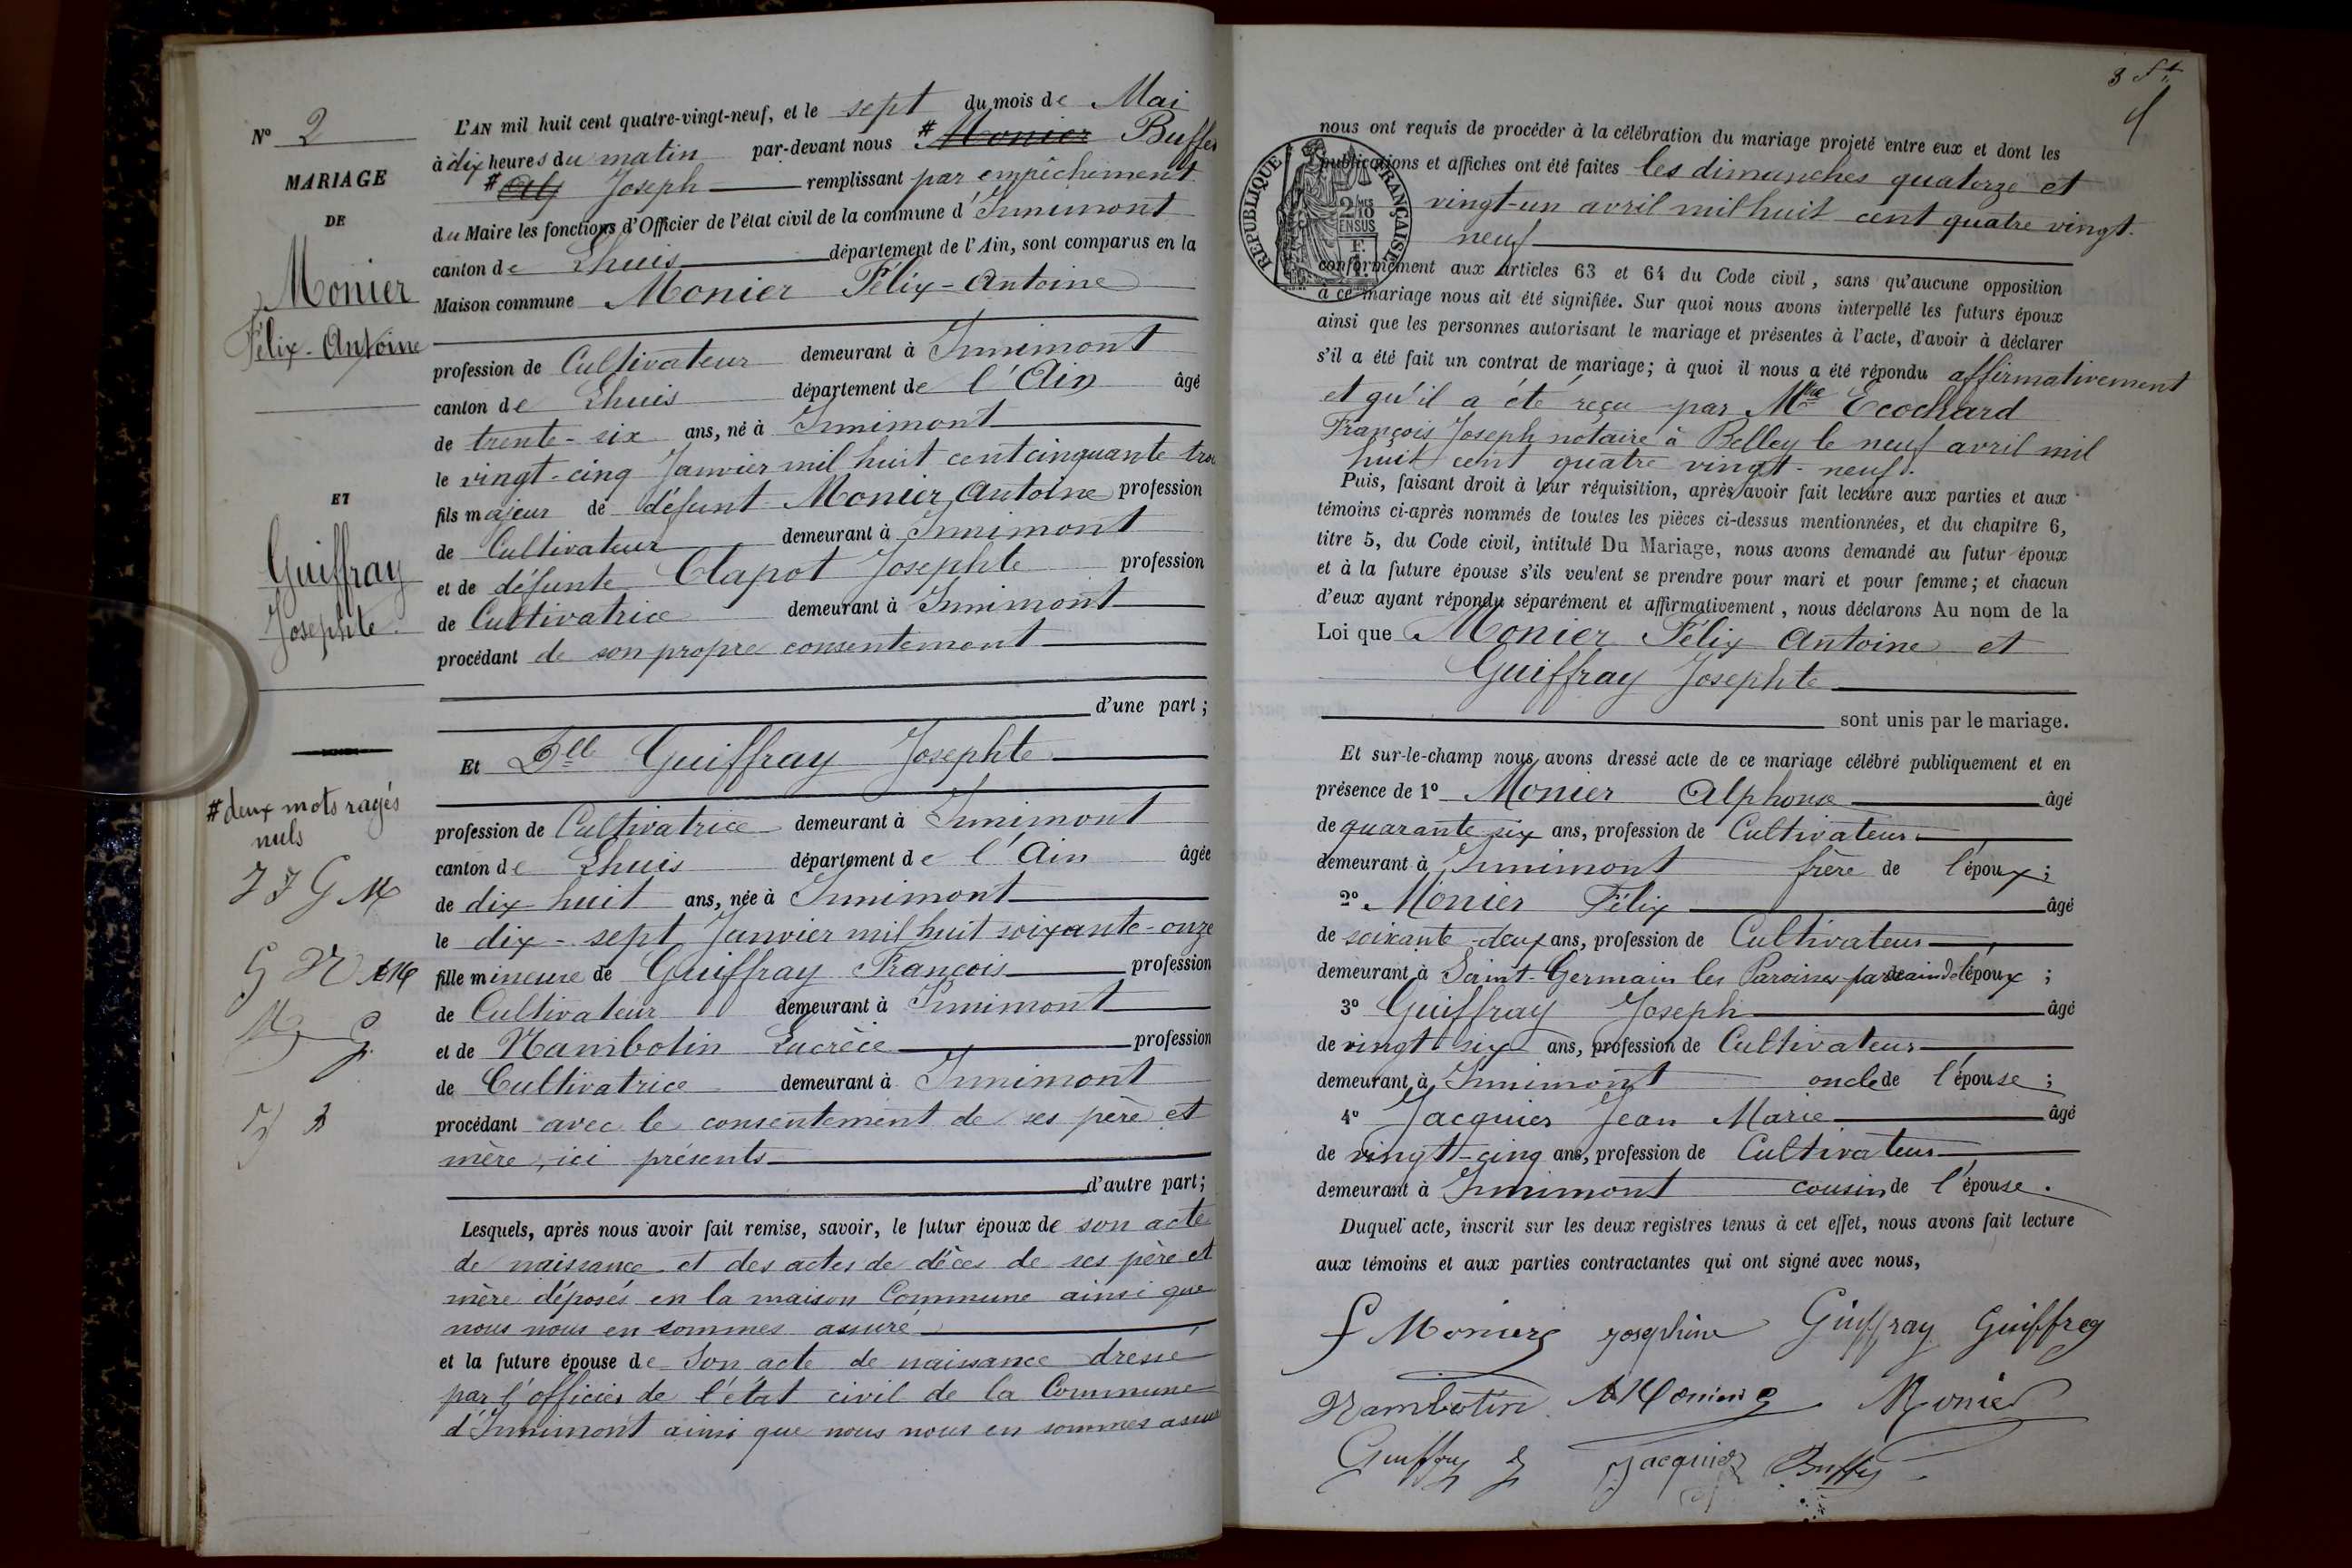 N° 2
MARIAGE
DE
Monier
Félix-Antoine
ET
Guiffray
Josephte
# deux mots rayés
nuls
J J G M
G N AM
M G
L'AN mil huit cent quatre-vingt-neuf, et le sept du mois de Mai
à dix heures du matin par-devant nous # Monier Buffet
# Alf Joseph remplissant par empêchement
du Maire les fonctions d'Officier de l'état civil de la commune d'Innimont
canton de Lhuis département de l'Ain, sont comparus en la
Maison commune Monier Félix-Antoine
profession de Cultivateur demeurant à Innimont
canton de Lhuis département de l'Ain âgé
de trente-six ans, né à Innimont
le vingt-cinq Janvier mil huit cent cinquante trois
fils majeur de défunt Monier Antoine profession
de Cultivateur demeurant à Innimont
et de défunte Clapot Josephte profession
de Cultivatrice demeurant à Innimont
procédant de son propre consentement
d'une part ;
Et Dlle Guiffray Josephte
profession de Cultivatrice demeurant à Innimont
canton de Lhuis département de l'Ain âgée
de dix-huit ans, née à Innimont
le dix-sept Janvier mil huit soixante-onze
fille mineure de Guiffray François profession
de Cultivateur demeurant à Innimont
et de Nambotin Lucrèce profession
de Cultivatrice demeurant à Innimont
procédant avec le consentement de ses père et
mère, ici présents
d'autre part ;
Lesquels, après nous avoir fait remise, savoir, le futur époux de son acte
de naissance et des actes de décès de ses père et
mère déposés en la maison Commune ainsi que
nous nous en sommes assuré
et la future épouse de son acte de naissance dressé
par l'officier de l'état civil de la Commune
d'Innimont ainsi que nous nous en sommes assuré
3 ft
RÉPUBLIQUE FRANÇAISE
2/10 EN SUS
nous ont requis de procéder à la célébration du mariage projeté entre eux et dont les
publications et affiches ont été faites les dimanches quatorze et
vingt-un avril mil huit cent quatre vingt
neuf
conformément aux articles 63 et 64 du Code civil, sans qu'aucune opposition
à ce mariage nous ait été signifiée. Sur quoi nous avons interpellé les futurs époux
ainsi que les personnes autorisant le mariage et présentes à l'acte, d'avoir à déclarer
s'il a été fait un contrat de mariage; à quoi il nous a été répondu affirmativement
et qu'il a été reçu par Mtre Ecochard
François Joseph notaire à Belley le neuf avril mil
huit cent quatre vingt-neuf.
Puis, faisant droit à leur réquisition, après avoir fait lecture aux parties et aux
témoins ci-après nommés de toutes les pièces ci-dessus mentionnées, et du chapitre 6,
titre 5, du Code civil, intitulé Du Mariage, nous avons demandé au futur époux
et à la future épouse s'ils veulent se prendre pour mari et pour femme; et chacun
d'eux ayant répondu séparément et affirmativement, nous déclarons Au nom de la
Loi que Monier Félix Antoine et
Guiffray Josephte
sont unis par le mariage.
Et sur-le-champ nous avons dressé acte de ce mariage célébré publiquement et en
présence de 1° Monier Alphonse âgé
de quarante six ans, profession de Cultivateur
demeurant à Innimont frère de l'époux ;
2° Monier Félix âgé
de soixante-deux ans, profession de Cultivateur
demeurant à Saint-Germain les Paroisses parrain de l'époux ;
3° Guiffray Joseph âgé
de vingt six ans, profession de Cultivateur
demeurant à Innimont oncle de l'épouse ;
4° Jacquier Jean Marie âgé
de vingt-cinq ans, profession de Cultivateur
demeurant à Innimont cousin de l'épouse.
Duquel acte, inscrit sur les deux registres tenus à cet effet, nous avons fait lecture
aux témoins et aux parties contractantes qui ont signé avec nous,
f Monier josephine Guiffray Guiffrey
Nambotin A Monier Monier
Guiffray J Jacquier Buffet